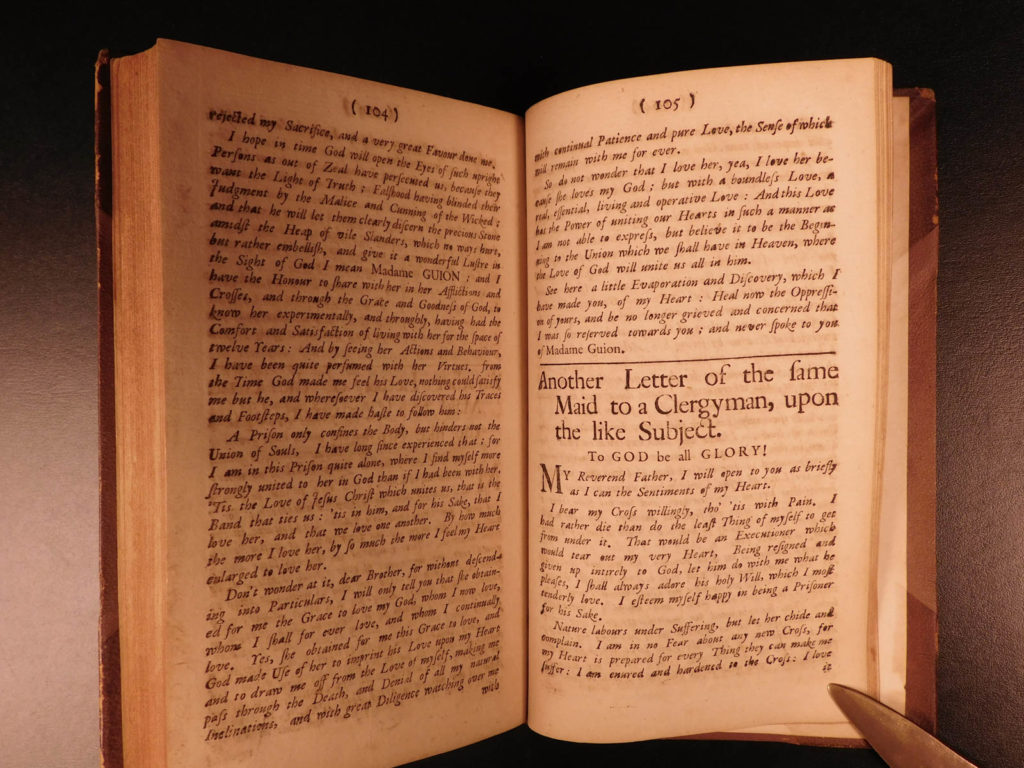 ( 104 )
rejected my Sacrifice, and a very great Favour done me.
I hope in time God will open the Eyes of such upright
Persons as out of Zeal have persecuted us, because they
want the Light of Truth ; Falshood having blinded their
Judgment by the Malice and Cunning of the Wicked ;
and that he will let them clearly discern the precious Stone
amidst the Heap of vile Slanders, which no ways hurt,
but rather embellish, and give it a wonderful Lustre in
the Sight of God I mean Madame GUION : and I
have the Honour to share with her in her Afflictions and
Crosses, and through the Grace and Goodness of God, to
know her experimentally, and throughly, having had the
Comfort and Satisfaction of living with her for the space of
twelve Years : And by seeing her Actions and Behaviour,
I have been quite perfumed with her Virtues. from
the Time God made me feel his Love, nothing could satisfy
me but he, and wheresoever I have discovered his Traces
and Footsteps, I have made haste to follow him :
A Prison only confines the Body, but hinders not the
Union of Souls, I have long since experienced that : for
I am in this Prison quite alone, where I find myself more
strongly united to her in God than if I had been with her,
'Tis the Love of Jesus Christ which unites us, that is the
Band that ties us : 'tis in him, and for his Sake, that I
love her, and that we love one another. By how much
the more I love her, by so much the more I feel my Heart
enlarged to love her.
Don't wonder at it, dear Brother, for without descend-
ing into Particulars, I will only tell you that she obtain-
ed for me the Grace to love my God, whom I now love,
whom I shall for ever love, and whom I continually
love. Yes, she obtained for me this Grace to love, and
God made Use of her to imprint his Love upon my Heart
and to draw me off from the Love of myself, making me
pass through the Death, and Denial of all my natural
Inclinations, and with great Diligence watching over me
with
( 105 )
with continual Patience and pure Love, the Sense of which
will remain with me for ever.
So do not wonder that I love her, yea, I love her be-
cause she loves my God ; but with a boundless Love, a
real, essential, living and operative Love : And this Love
has the Power of uniting our Hearts in such a manner as
I am not able to express, but believe it to be the Begin-
ning to the Union which we shall have in Heaven, where
the Love of God will unite us all in him.
See here a little Evaporation and Discovery, which I
have made you, of my Heart : Heal now the Oppressi-
on of yours, and be no longer grieved and concerned that
I was so reserved towards you ; and never spoke to you
of Madame Guion.
Another Letter of the same
Maid to a Clergyman, upon
the like Subject.
To GOD be all GLORY!
MY Reverend Father, I will open to you as briefly
as I can the Sentiments of my Heart.
I bear my Cross willingly, tho' 'tis with Pain. I
had rather die than do the least Thing of myself to get
from under it. That would be an Executioner which
would tear out my very Heart, Being resigned and
given up intirely to God, let him do with me what he
pleases, I shall always adore his holy Will, which I most
tenderly love. I esteem myself happy in being a Prisoner
for his Sake.
Nature labours under Suffering, but let her chide and
complain. I am in no Fear about any new Cross, for
my Heart is prepared for every Thing they can make me
suffer : I am enured and hardened to the Cross : I love
it